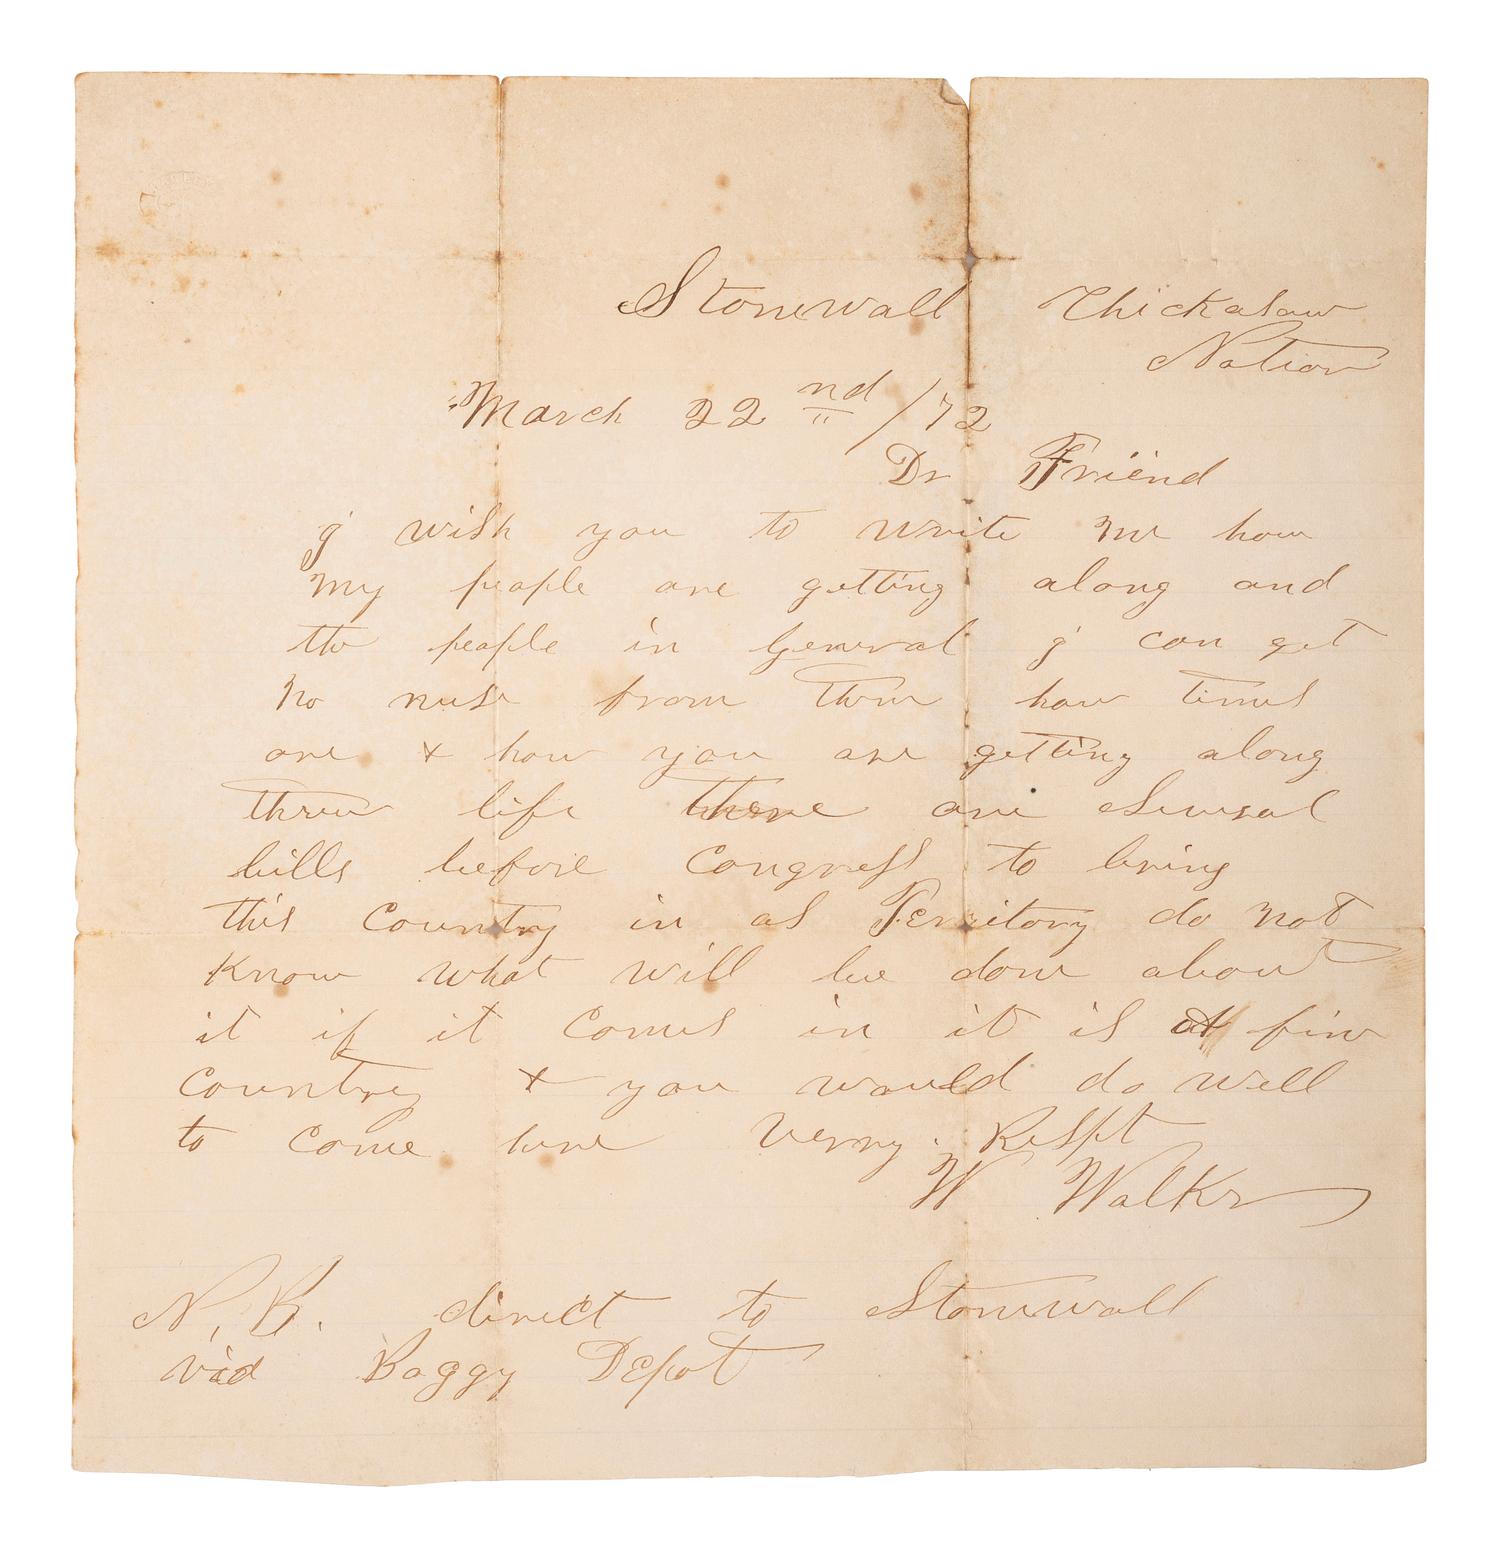 Stonewall Chickasaw
Nation
March 22nd /72
Dr Friend
I wish you to write me how
my people are getting along and
the people in General I can get
no nuse from them how times
are & how you are getting along
threw life there are Several
bills before Congress to bring
this Country in as Territory do not
Know what will be done about
it if it Comes in it is a fine
Country & you would do well
to Come here Verry Respt
W Walker
N.B. direct to Stonewall
via Boggy Depot